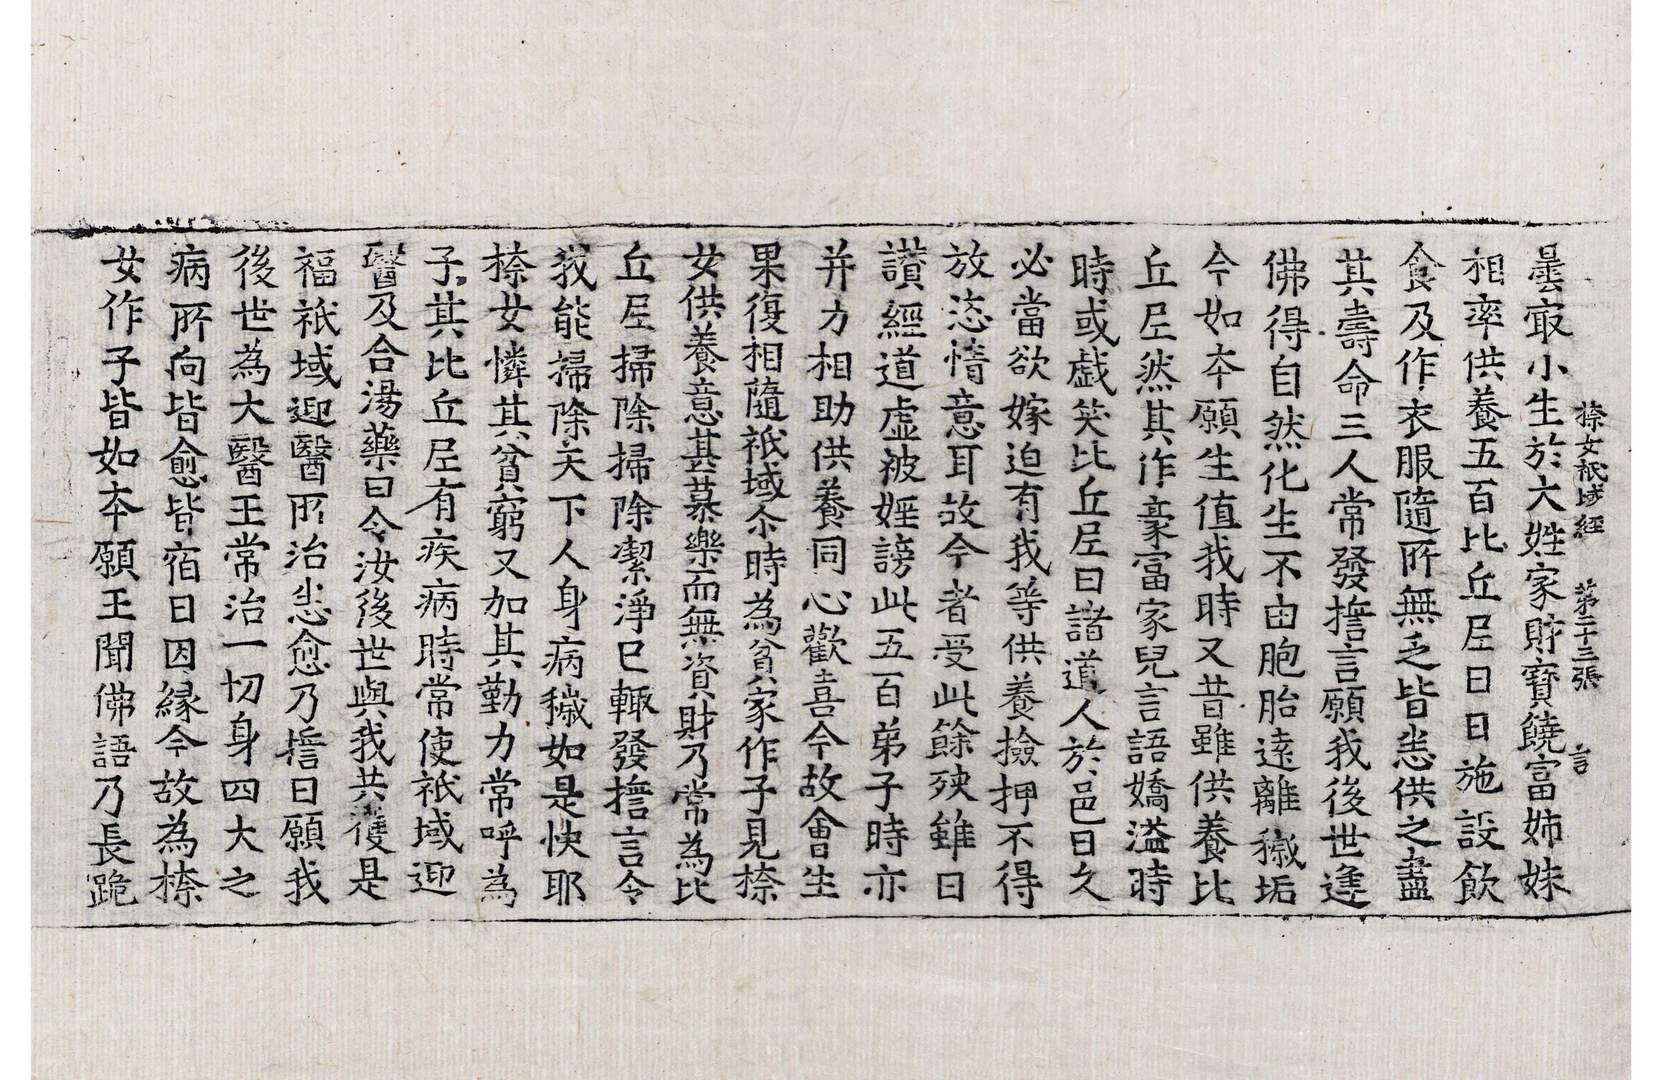 㮈女祇域經　第二十三張　言
曇㝡小生於大姓家財寶饒富姉妹
相率供養五百比丘尼日日施設飮
食及作衣服隨所無乏皆悉供之盡
其壽命三人常發誓言願我後世逢
佛得自然化生不由胞胎遠離穢垢
今如本願生值我時又昔雖供養比
丘尼然其作豪富家兒言語嬌溢時
時或戱笑比丘尼曰諸道人於邑日久
必當欲嫁迫有我等供養撿押不得
放恣情意耳故今者受此餘殃雖日
讃經道虛被婬謗此五百弟子時亦
并力相助供養同心歡喜今故會生
果復相隨祇域尒時為貧家作子見㮈
女供養意甚慕樂而無資財乃常為比
丘尼掃除掃除潔淨已輙發誓言令
我能掃除天下人身病穢如是快耶
㮈女憐其貧窮又加其勤力常呼為
子其比丘尼有疾病時常使祇域迎
醫及合湯藥曰令汝後世與我共獲是
福祇域迎醫所治悉愈乃誓曰願我
後世為大醫王常治一切身四大之
病所向皆愈皆宿日因緣今故為㮈
女作子皆如本願王聞佛語乃長跪